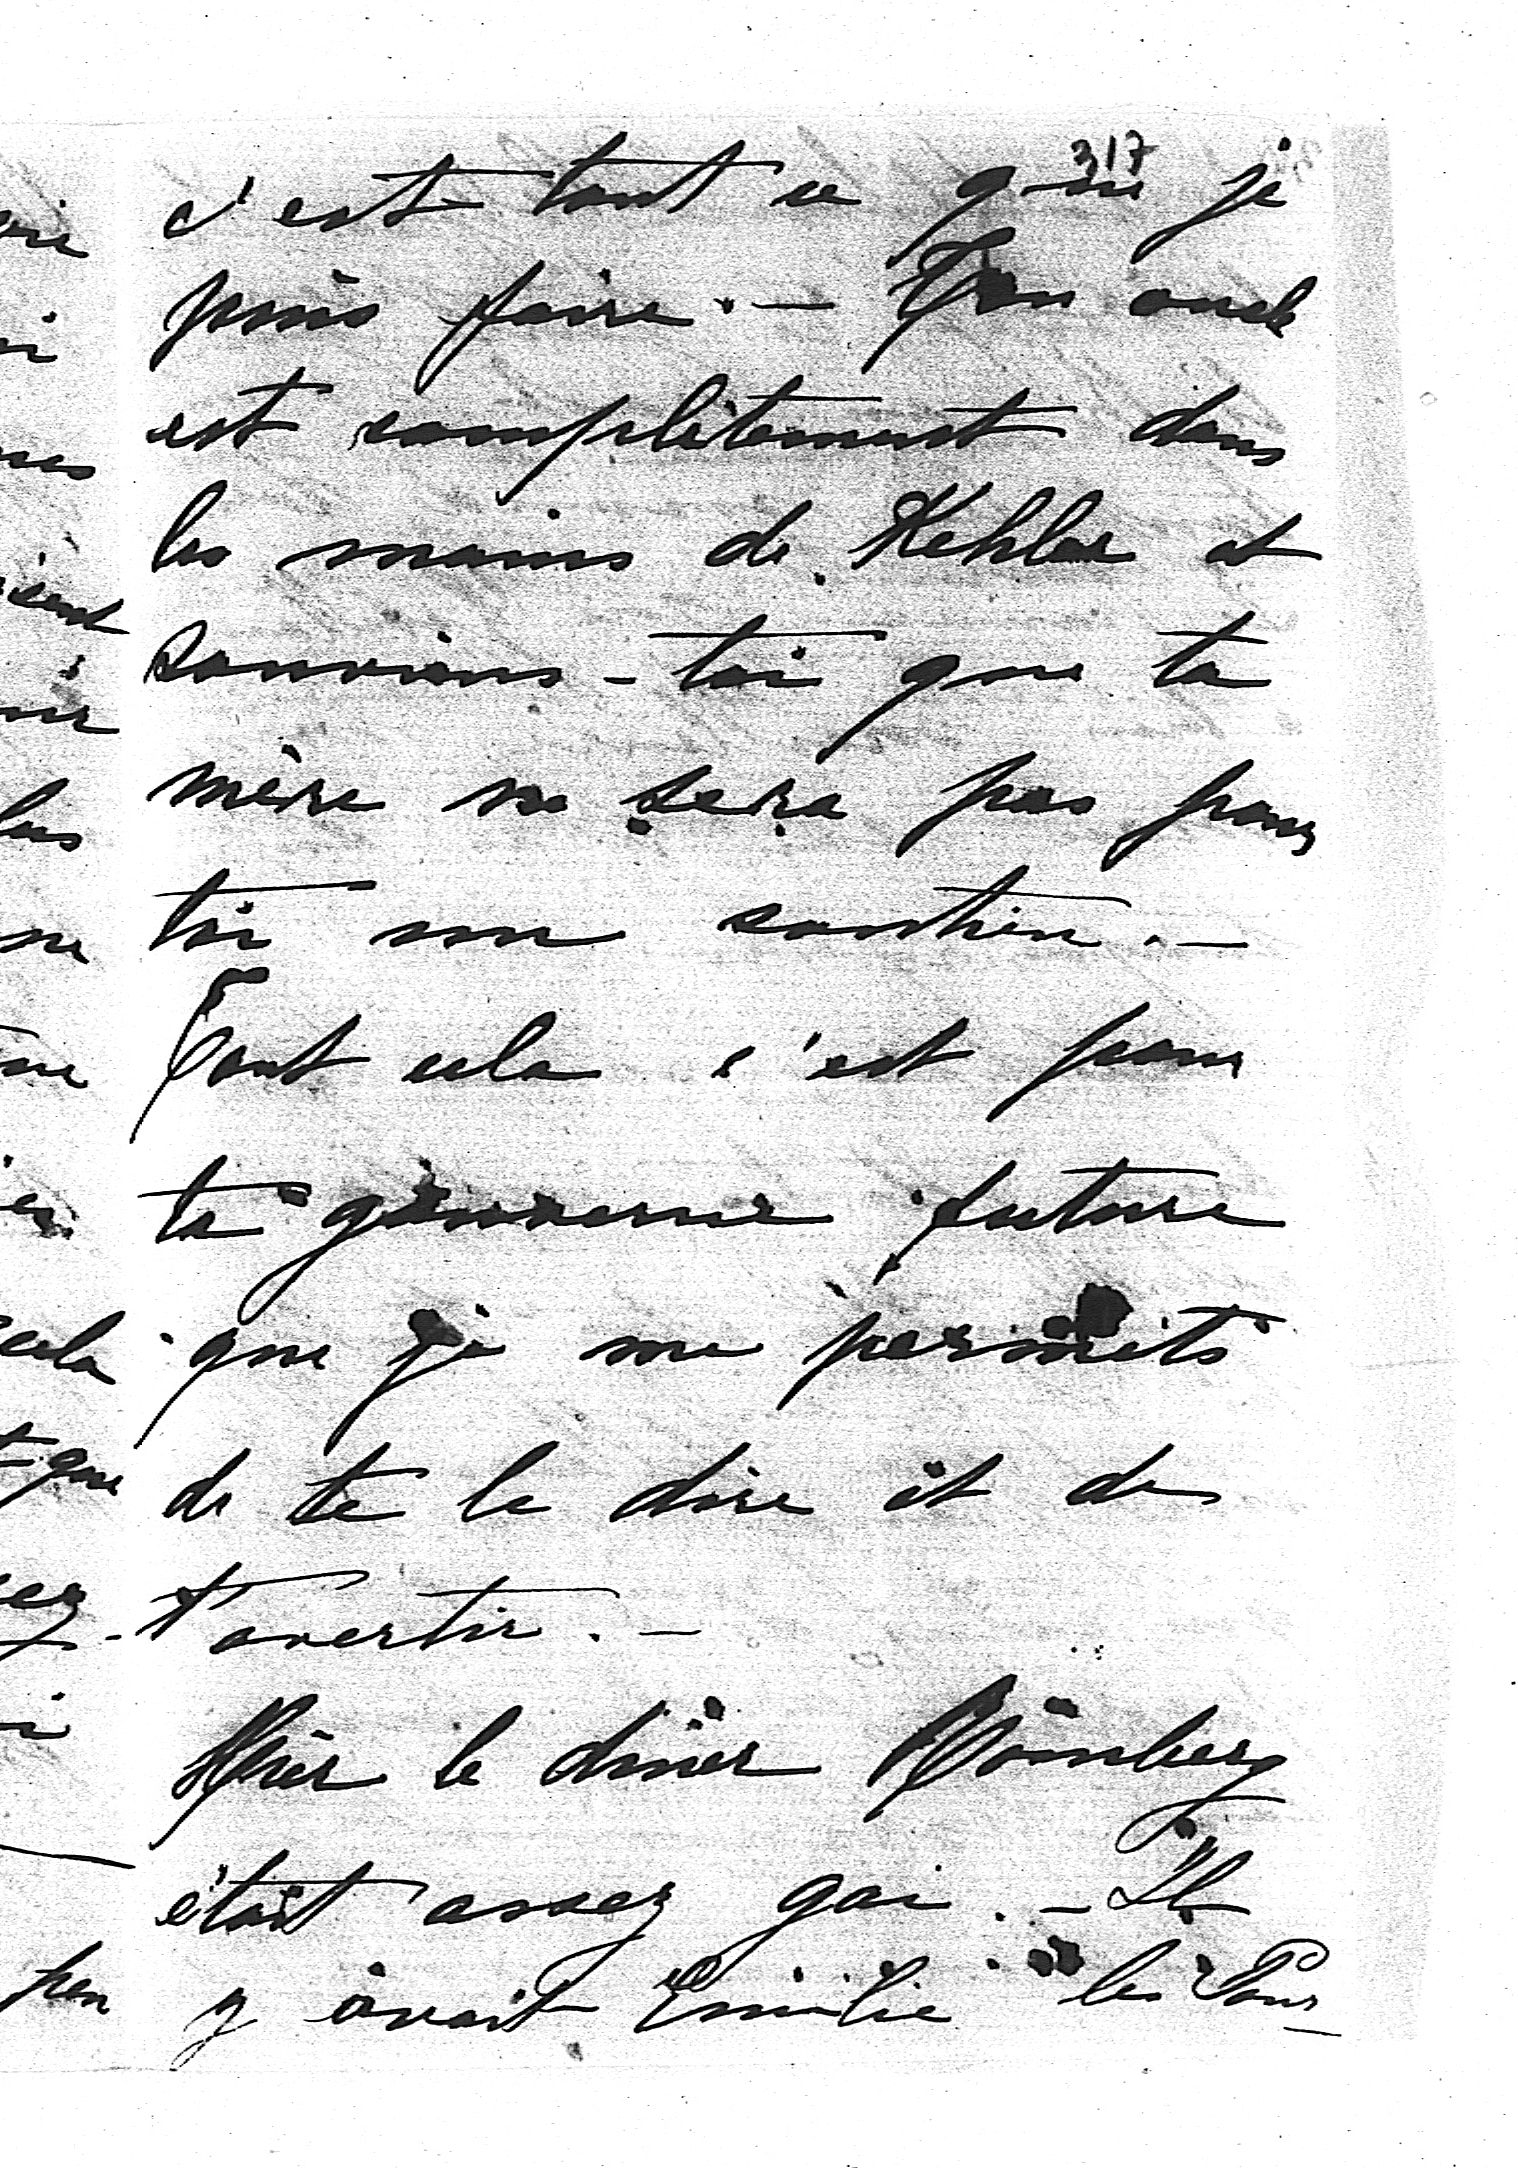 317
c'est tout ce que je
puis faire. — Ton oncle
est complètement dans
les mains de Kehler et
souviens-toi que ta
mère ne sera pas pour
toi un soutien. —
Tout cela c'est pour
ta gouverne future
que je me permets
de te le dire et de
t'avertir. —
Hier le dîner Römberg
était assez gai. — Il
y avait Emilie les Pour-